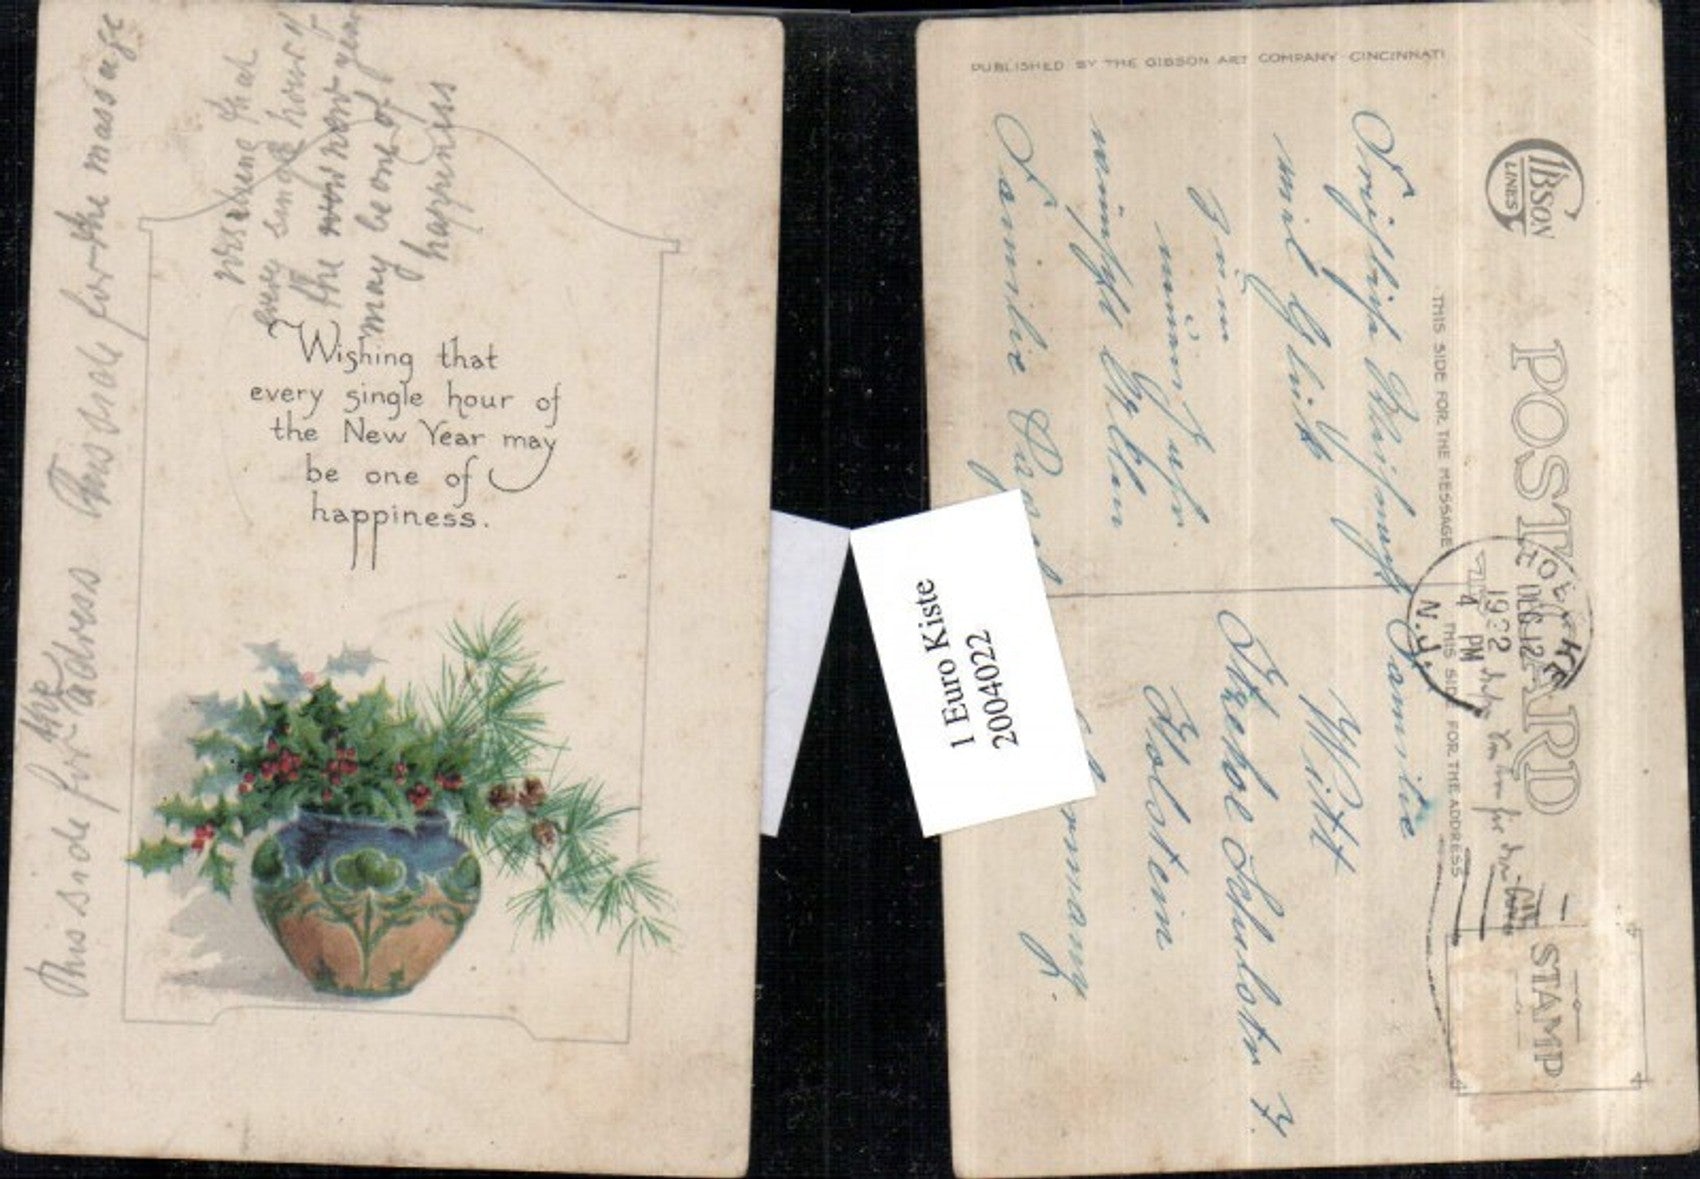 This side for the address This side for the massage
every single hour
the new year
may be one of
happiness
Wishing that
every single hour of
the New Year may
be one of
happiness.
1 Euro Kiste
2004022
PUBLISHED BY THE GIBSON ART COMPANY CINCINNATI
GIBSON
LINES
POST CARD
THIS SIDE FOR THE MESSAGE
THIS SIDE FOR THE ADDRESS
STAMP
HOBOKEN
DEC 12
4 PM
1922
N.J.
Fröhliche Weihnacht
viel Glück
zum
neuen Jahr
wünscht
Familie
Familie
Witt
Strehoe Schulstr 7.
Holstein
Germany.